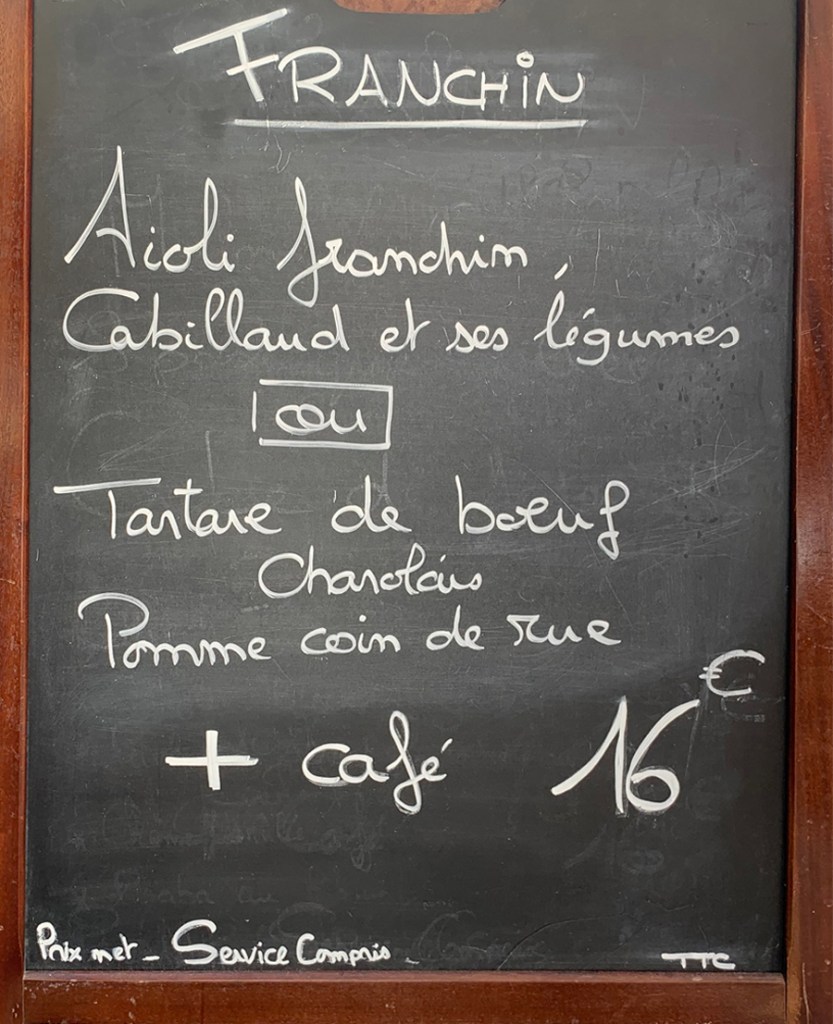 FRANCHIN
Aioli franchin,
Cabillaud et ses légumes
ou
Tartare de bœuf
Charolais
Pomme coin de rue
+ café 16€
Prix net - Service Compris - TTC